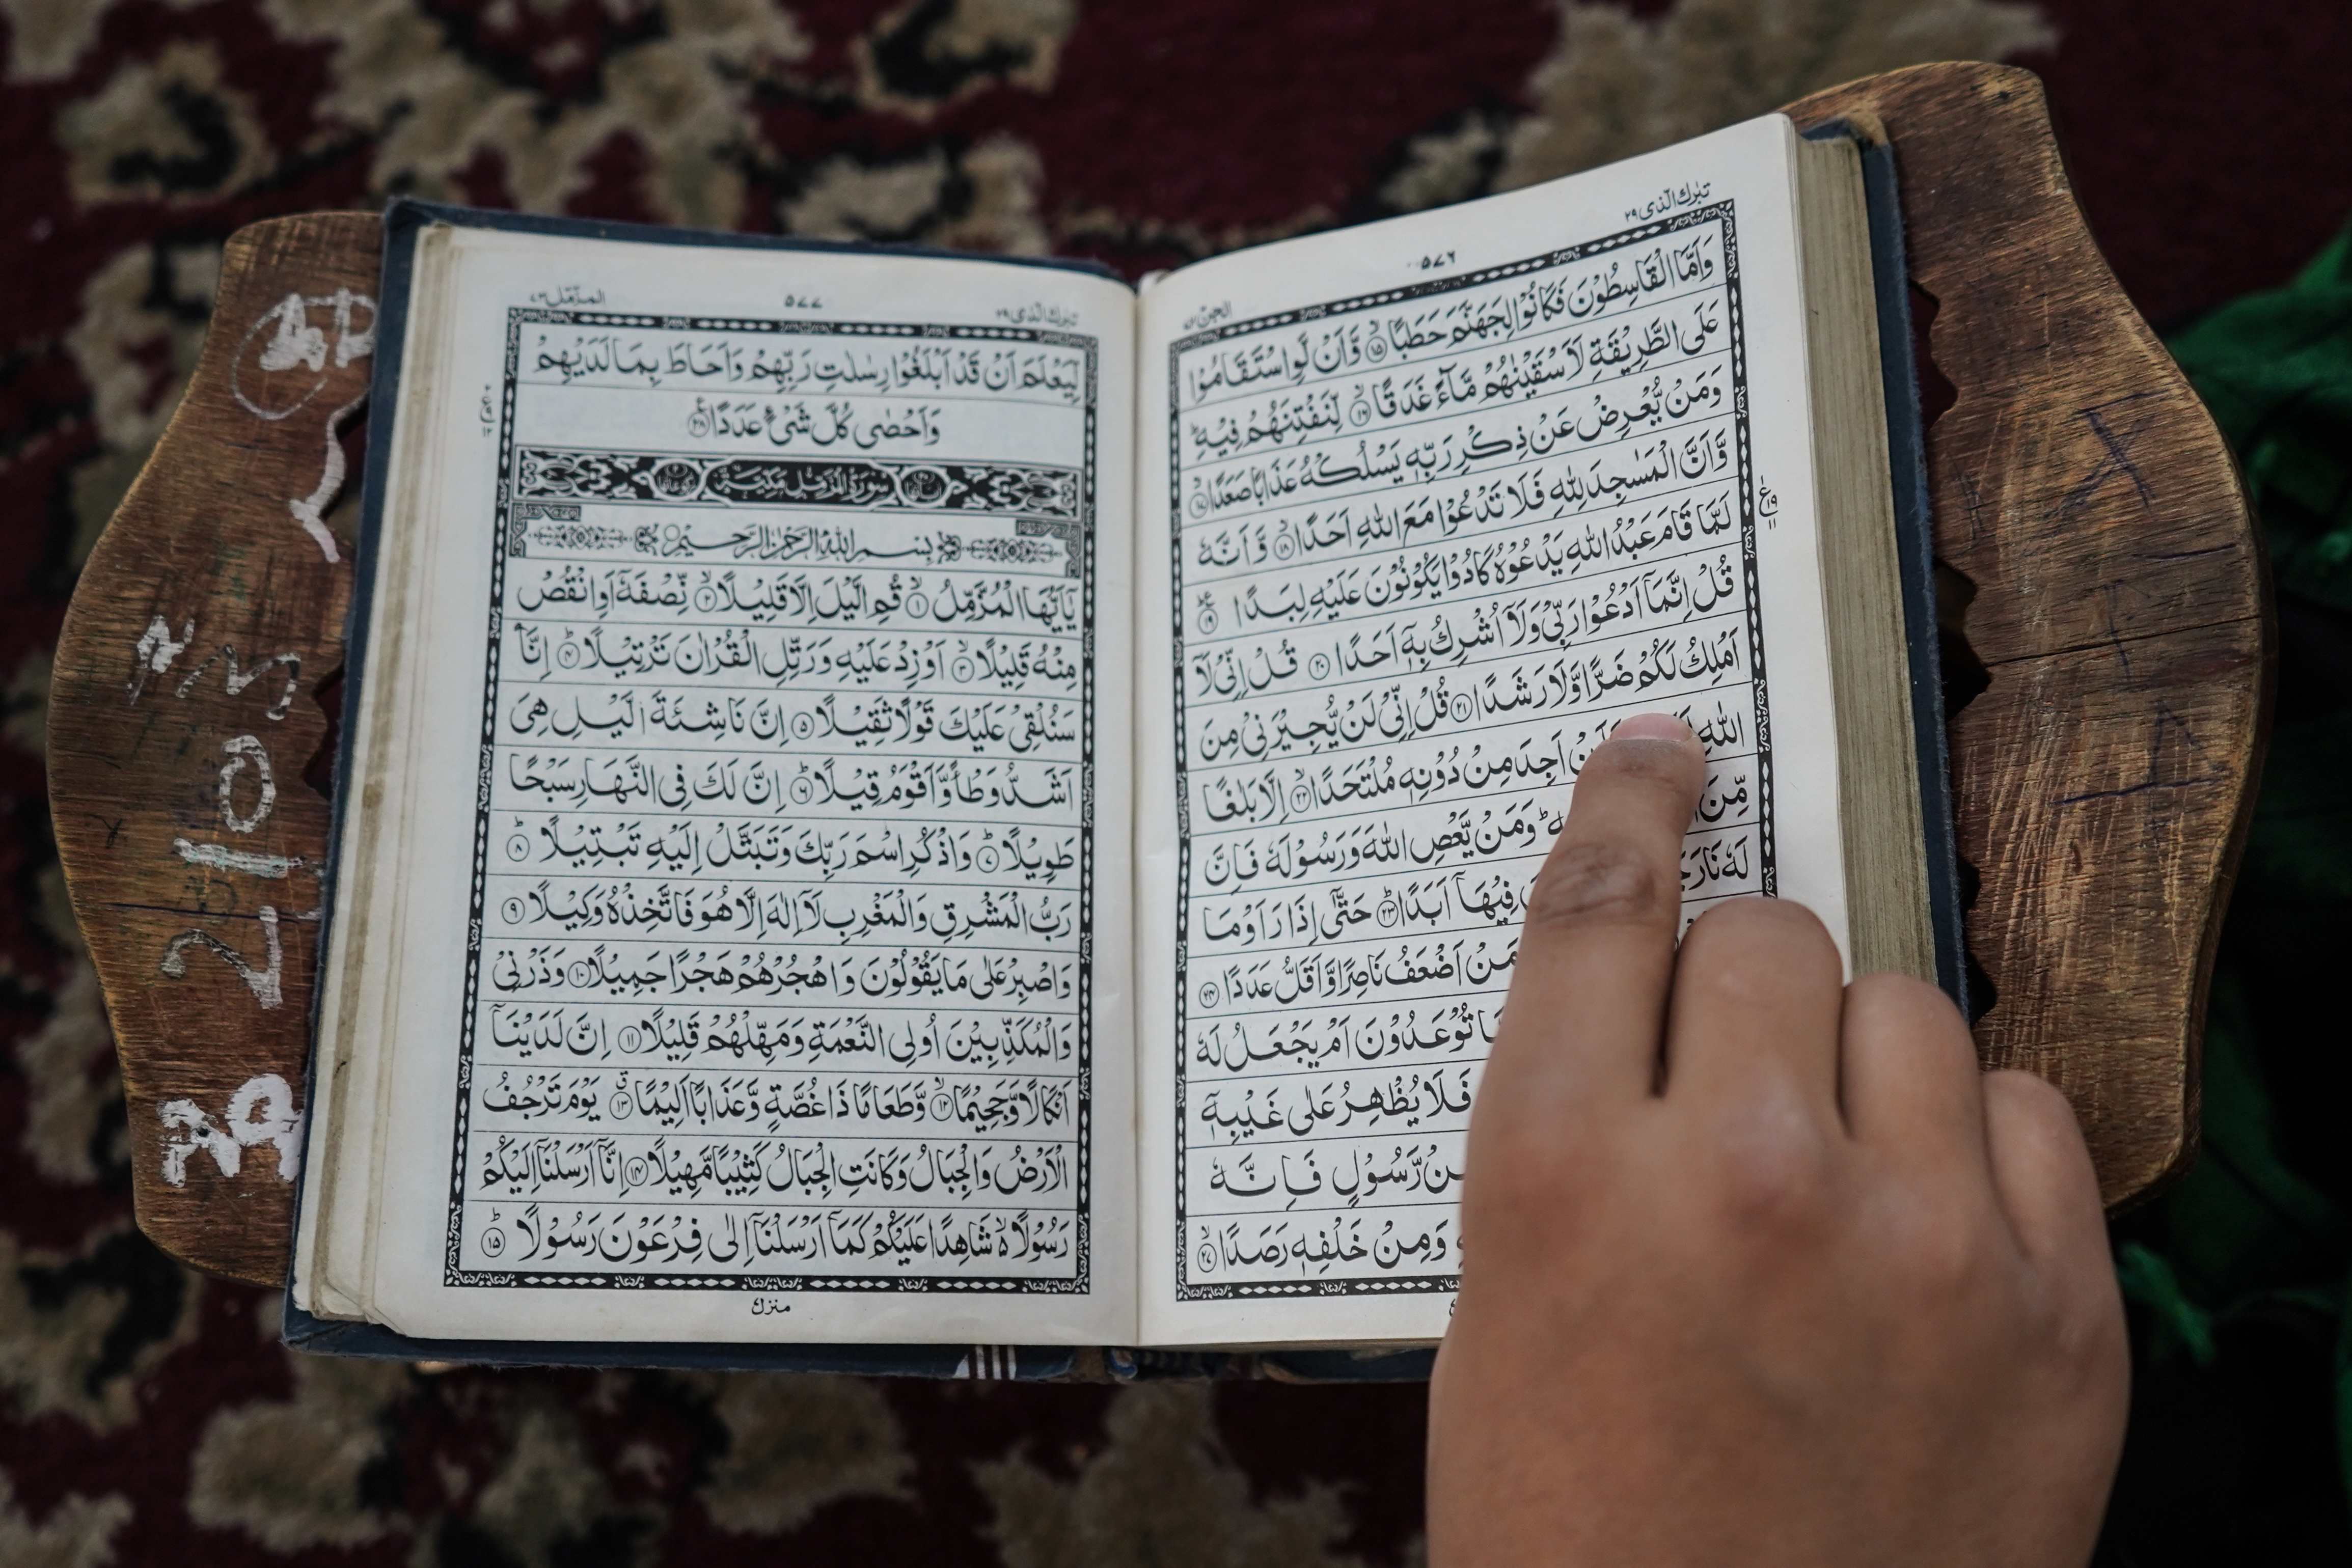 تبٰرك الذی ٢٩
٥٧٦
الجن
وَاَمَّا الْقٰسِطُوْنَ فَكَانُوْا لِجَهَنَّمَ حَطَبًا ۙ﴿۱۵﴾ وَّاَنْ لَّوِ اسْتَقَامُوْا
عَلَى الطَّرِيْقَةِ لَاَسْقَيْنٰهُمْ مَّآءً غَدَقًا ۙ﴿۱۶﴾ لِّنَفْتِنَهُمْ فِيْهِ ؕ
وَمَنْ يُّعْرِضْ عَنْ ذِكْرِ رَبِّهٖ يَسْلُكْهُ عَذَابًا صَعَدًا ۙ﴿۱۷﴾
وَّاَنَّ الْمَسٰجِدَ لِلّٰهِ فَلَا تَدْعُوْا مَعَ اللّٰهِ اَحَدًا ۙ﴿۱۸﴾ وَّاَنَّهٗ
لَمَّا قَامَ عَبْدُ اللّٰهِ يَدْعُوْهُ كَادُوْا يَكُوْنُوْنَ عَلَيْهِ لِبَدًا ﴿۱۹﴾
قُلْ اِنَّمَآ اَدْعُوْا رَبِّيْ وَلَآ اُشْرِكُ بِهٖٓ اَحَدًا ﴿۲۰﴾ قُلْ اِنِّيْ لَآ
اَمْلِكُ لَكُمْ ضَرًّا وَّلَا رَشَدًا ﴿۲۱﴾ قُلْ اِنِّيْ لَنْ يُّجِيْرَنِيْ مِنَ
اللّٰهِ اَجِدَ مِنْ دُوْنِهٖ مُلْتَحَدًا ۙ﴿۲۲﴾ اِلَّا بَلٰغًا
مِّنَ ؕ وَمَنْ يَّعْصِ اللّٰهَ وَرَسُوْلَهٗ فَاِنَّ
لَهٗ نَارَ فِيْهَآ اَبَدًا ؕ﴿۲۳﴾ حَتّٰٓى اِذَا رَاَوْا مَا
مَنْ اَضْعَفُ نَاصِرًا وَّاَقَلُّ عَدَدًا ﴿۲۴﴾
تُوْعَدُوْنَ اَمْ يَجْعَلُ لَهٗ
فَلَا يُظْهِرُ عَلٰى غَيْبِهٖٓ
رَّسُوْلٍ فَاِنَّهٗ
وَمِنْ خَلْفِهٖ رَصَدًا ۙ﴿۲۷﴾
تبٰرك الذی ٢٩
٥٧٧
المزّمّل ٧٣
لِّيَعْلَمَ اَنْ قَدْ اَبْلَغُوْا رِسٰلٰتِ رَبِّهِمْ وَاَحَاطَ بِمَا لَدَيْهِمْ
وَاَحْصٰى كُلَّ شَيْءٍ عَدَدًا ﴿۲۸﴾
سُوْرَةُ الْمُزَّمِّلِ مَكِّيَّةٌ
بِسْمِ اللّٰهِ الرَّحْمٰنِ الرَّحِيْمِ
يٰٓاَيُّهَا الْمُزَّمِّلُ ۙ﴿۱﴾ قُمِ الَّيْلَ اِلَّا قَلِيْلًا ۙ﴿۲﴾ نِّصْفَهٗٓ اَوِ انْقُصْ
مِنْهُ قَلِيْلًا ۙ﴿۳﴾ اَوْ زِدْ عَلَيْهِ وَرَتِّلِ الْقُرْاٰنَ تَرْتِيْلًا ؕ﴿۴﴾ اِنَّا
سَنُلْقِيْ عَلَيْكَ قَوْلًا ثَقِيْلًا ﴿۵﴾ اِنَّ نَاشِئَةَ الَّيْلِ هِيَ
اَشَدُّ وَطْاً وَّاَقْوَمُ قِيْلًا ؕ﴿۶﴾ اِنَّ لَكَ فِي النَّهَارِ سَبْحًا
طَوِيْلًا ؕ﴿۷﴾ وَاذْكُرِ اسْمَ رَبِّكَ وَتَبَتَّلْ اِلَيْهِ تَبْتِيْلًا ؕ﴿۸﴾
رَبُّ الْمَشْرِقِ وَالْمَغْرِبِ لَآ اِلٰهَ اِلَّا هُوَ فَاتَّخِذْهُ وَكِيْلًا ﴿۹﴾
وَاصْبِرْ عَلٰى مَا يَقُوْلُوْنَ وَاهْجُرْهُمْ هَجْرًا جَمِيْلًا ﴿۱۰﴾ وَذَرْنِيْ
وَالْمُكَذِّبِيْنَ اُولِي النَّعْمَةِ وَمَهِّلْهُمْ قَلِيْلًا ﴿۱۱﴾ اِنَّ لَدَيْنَآ
اَنْكَالًا وَّجَحِيْمًا ۙ﴿۱۲﴾ وَّطَعَامًا ذَا غُصَّةٍ وَّعَذَابًا اَلِيْمًا ﴿۱۳﴾ يَوْمَ تَرْجُفُ
الْاَرْضُ وَالْجِبَالُ وَكَانَتِ الْجِبَالُ كَثِيْبًا مَّهِيْلًا ﴿۱۴﴾ اِنَّآ اَرْسَلْنَآ اِلَيْكُمْ
رَسُوْلًا ۙ شَاهِدًا عَلَيْكُمْ كَمَآ اَرْسَلْنَآ اِلٰى فِرْعَوْنَ رَسُوْلًا ؕ﴿۱۵﴾
منزل